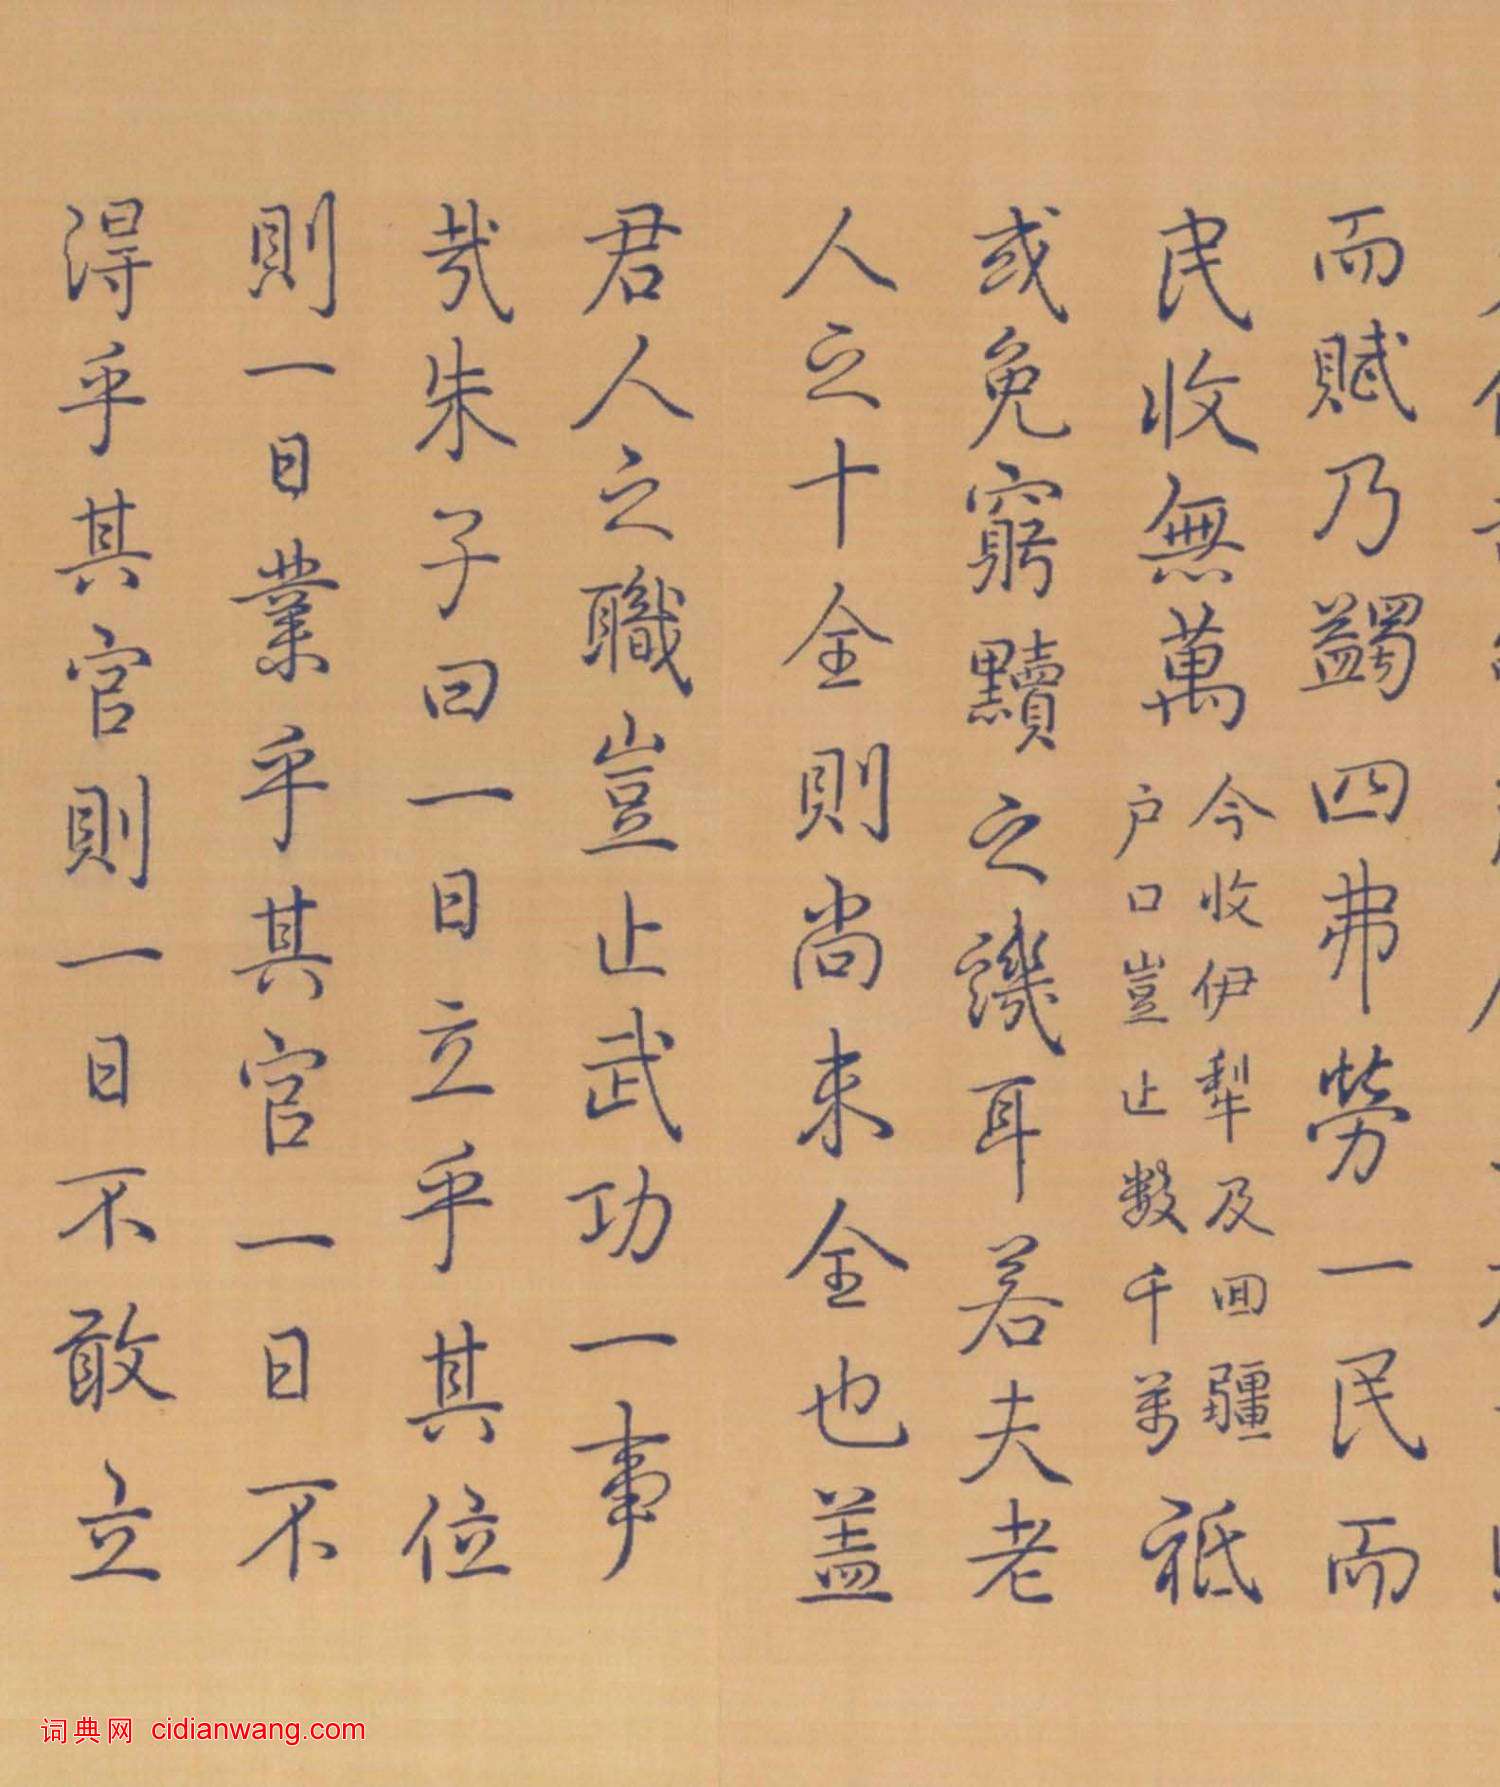 而賦乃蠲四弗勞一民而
民收無萬
今收伊犁及囬疆
户口豈止数千萬
祗
或免窮黷之譏耳若夫老
人之十全則尚未全也盖
君人之職豈止武功一事
哉朱子曰一日立乎其位
則一日業乎其官一日不
得乎其官則一日不敢立
词典网 cidianwang.com